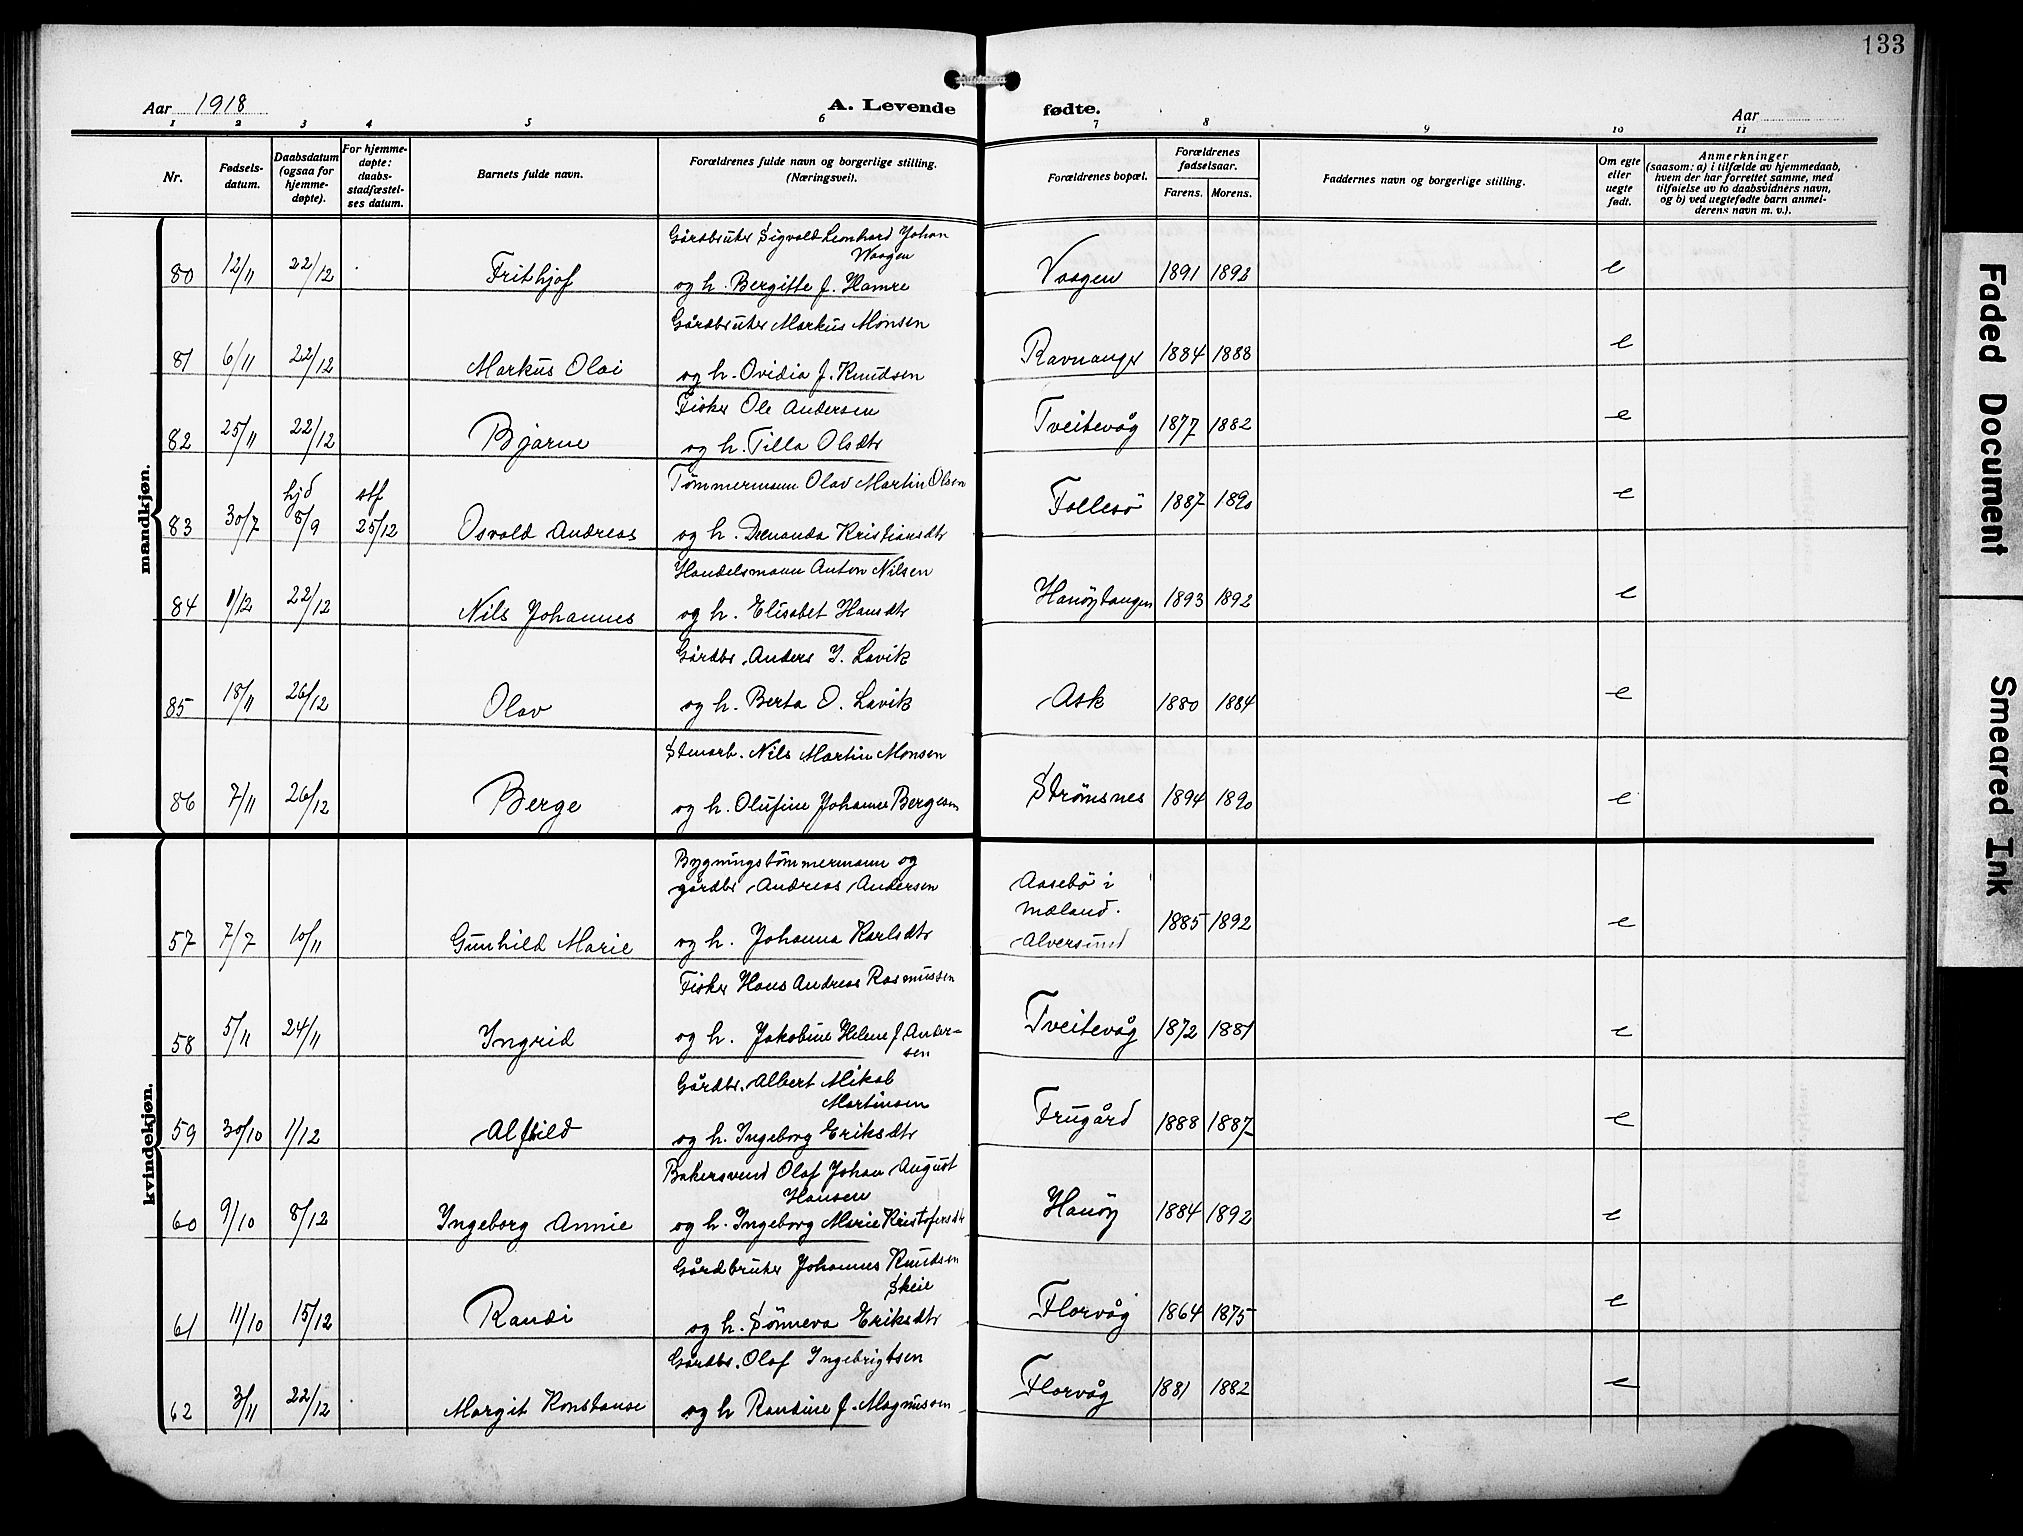 133
Aar 1918
A. Levende fødte.
Aar
1 2 3 4 5 6 7 8 9 10 11
Nr.
Fødsels-
datum.
Daabsdatum
(ogsaa for
hjemme-
døpte).
For hjemme-
døpte:
daabs-
stadfæstel-
ses datum.
Barnets fulde navn.
Forældrenes fulde navn og borgerlige stilling.
(Næringsveil).
Forældrenes bopæl.
Forældrenes
fødselsaar.
Farens. Morens.
Faddernes navn og borgerlige stilling.
Om egte
eller
uegte
født.
Anmerkninger
(saasom: a) i tilfælde av hjemmedaab,
hvem der har forrettet samme, med
tilføielse av to daabsvidners navn,
og b) ved uegtefødte barn anmel-
derens navn m. v.).
mandkjøn.
Gårdbruker Sigvald Leonhard Johan
Waagen
80 12/11 22/12 Frithjof og h. Bergitte f. Hamre Vaagen 1891 1892 e
Gårdbruker Markus Monsen
81 6/11 22/12 Markus Olai og h. Ovidia f. Knudsen Ravnanger 1884 1888 e
Fisker Ole Andersen
82 25/11 22/12 Bjarne og h. Tilla Olsdtr Tveitevåg 1877 1882 e
Tømmermann Olav Martin Olsen
83 30/7 hjd 8/9 stf 25/12 Osvald Andreas og h. Kristiansdtr Follesö 1887 1890 e
Handelsmann Anton Nilsen
84 1/12 22/12 Nils Johannes og h. Elisabet Hansdtr Hanöytangen 1893 1892 e
Gårdbr. Anders J. Lavik
85 18/11 26/12 Olav og h. Berta O. Lavik Ask 1880 1884 e
Stenarb. Nils Martin Monsen
86 7/11 26/12 Berge og h. Olufine Johanne Bergesen Strømsnes 1894 1890 e
kvindekjøn.
Bygningstømmermann og
gårdbr Andreas Andersen
57 7/7 10/11 Gunhild Marie og h. Johanna Karlsdtr Aasebö i Mæland. Alversund 1885 1892 e
Fisker Hans Andreas Rasmussen
58 5/11 24/11 Ingrid og h. Jakobine Helene f. Ander-
sen Tveitevåg 1872 1881 e
Gårdbr. Albert Mikal
Martinsen
59 30/10 1/12 Alfhild og h. Ingeborg Eriksdtr Frugård 1888 1887 e
Bakersvend Olaf Johan August
Hansen
60 9/10 8/12 Ingeborg Annie og h. Ingeborg Marie Kristofersdtr Hanöy 1884 1892 e
Gårdbruker Johannes Knudsen
Skeie
61 11/10 15/12 Randi og h. Sönneva Eriksdtr Florvåg 1864 1875 e
Gårdbr. Olaf Ingebrigtsen
62 3/11 22/12 Margit Konstanse og h Randine f. Magnussen Florvåg 1881 1882 e
Faded Document
Smeared Ink